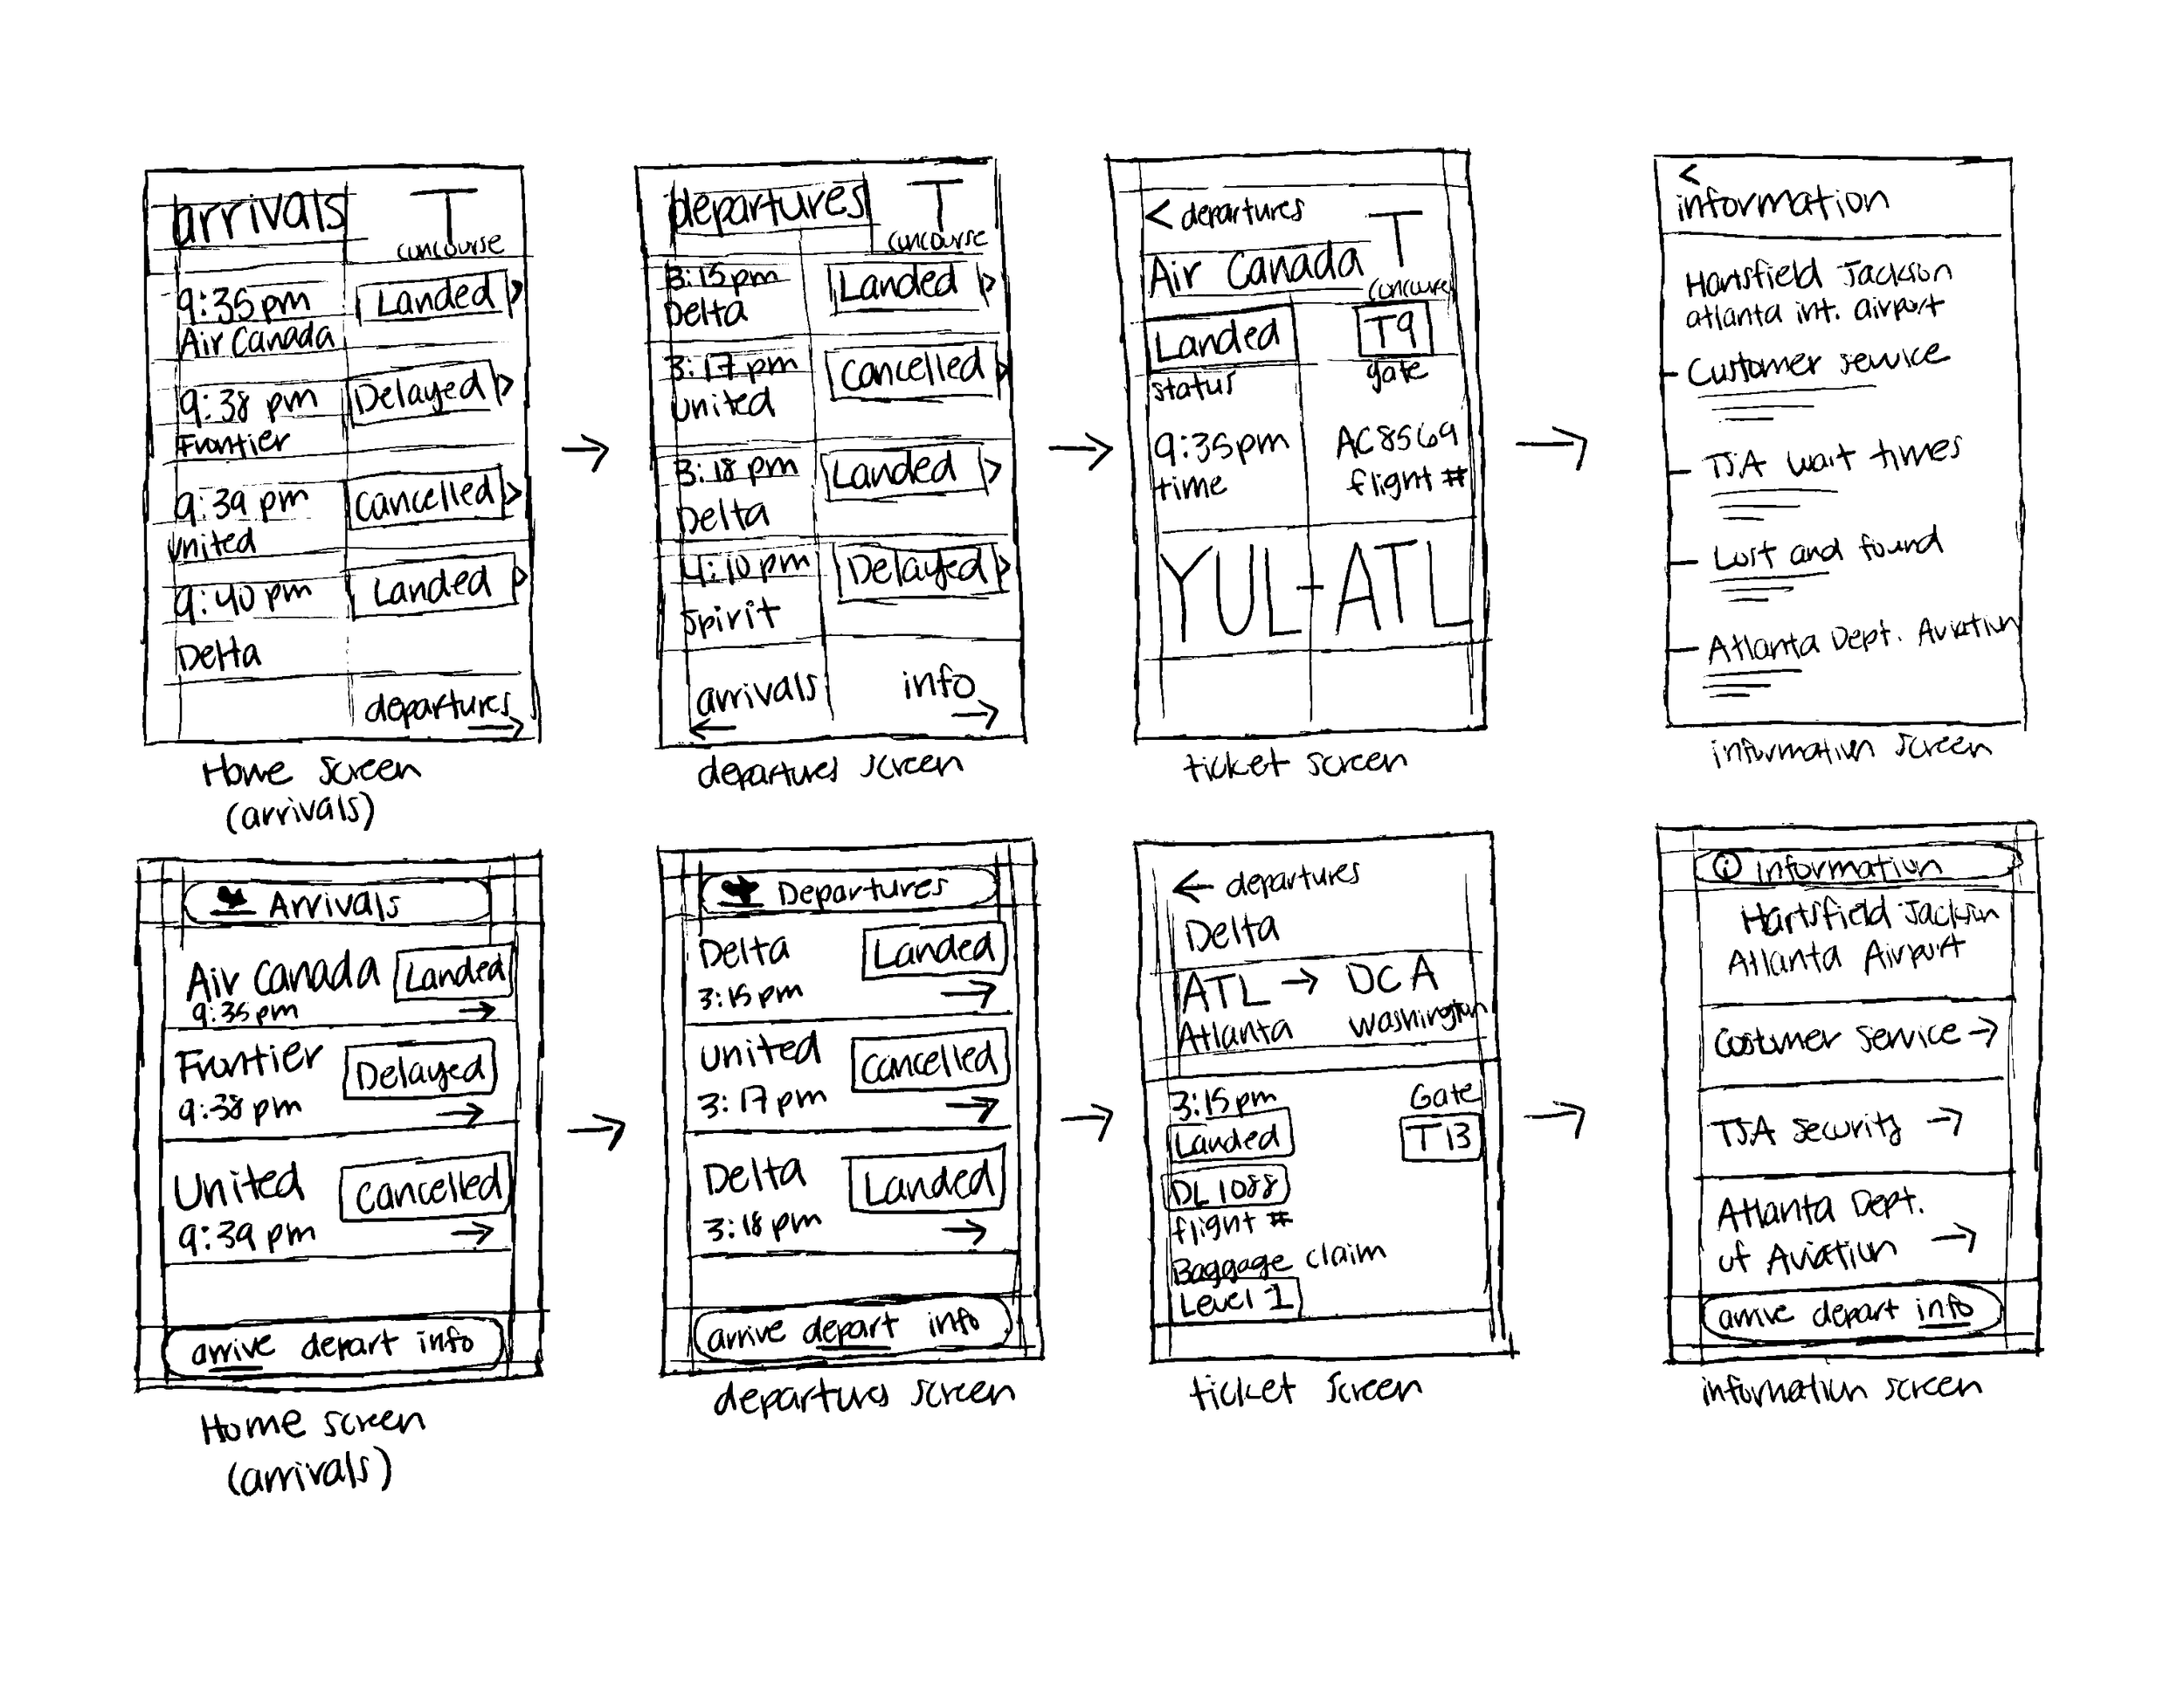 arrivals
T
concourse
9:35pm
Landed >
Air Canada
9:38 pm
Delayed >
Frontier
9:39 pm
Cancelled >
United
9:40 pm
Landed >
Delta
departures
→
Home screen
(arrivals)
→
departures
T
concourse
3:15pm
Landed >
Delta
3:17pm
Cancelled >
United
3:18 pm
Landed >
Delta
4:10 pm
Delayed >
Spirit
arrivals
←
info
→
departures screen
→
< departures
T
concourse
Air Canada
Landed
status
T9
gate
9:35pm
time
AC8569
flight #
YUL-ATL
ticket screen
→
<
information
Hartsfield Jackson
atlanta int. airport
- Customer service
- TSA wait times
- Lost and found
- Atlanta Dept. Aviation
information screen
Arrivals
Air Canada Landed
9:35pm →
Frontier Delayed
9:38pm →
United Cancelled
9:39 pm →
arrive depart info
Home screen
(arrivals)
→
Departures
Delta Landed
3:15pm →
United Cancelled
3:17pm →
Delta Landed
3:18 pm →
arrive depart info
departures screen
→
← departures
Delta
ATL → DCA
Atlanta Washington
3:15pm
Landed
Gate
T13
DL1088
flight #
Baggage claim
Level 1
ticket screen
→
i Information
Hartsfield Jackson
Atlanta Airport
Costumer service →
TSA security →
Atlanta Dept.
of Aviation →
arrive depart info
information screen